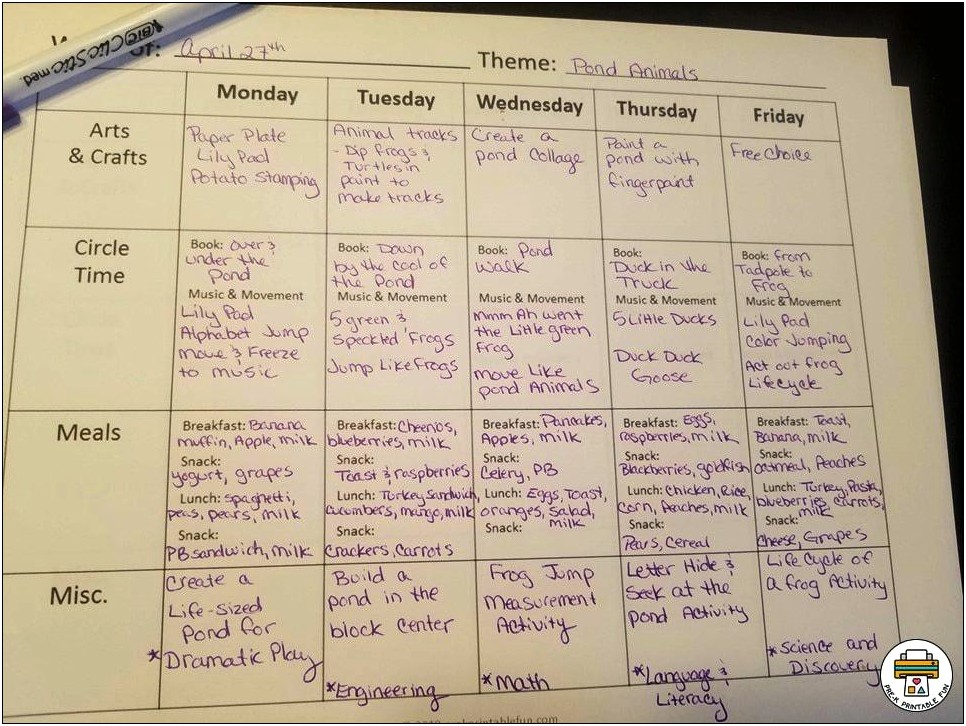 BIC Clic Stic med
W
of: April 27th Theme: Pond Animals
Monday Tuesday Wednesday Thursday Friday
Arts
& Crafts
Paper Plate
Lily Pad
Potato Stamping
Animal tracks
- Dip frogs &
Turtles in
paint to
make tracks
Create a
pond collage
Paint a
pond with
fingerpaint
Free Choice
Circle
Time
Book: Over &
under the
Pond
Music & Movement
Lily Pad
Alphabet Jump
Move & Freeze
to music
Book: Down
by the cool of
the Pond
Music & Movement
5 green &
Speckled Frogs
Jump Like Frogs
Book: Pond
Walk
Music & Movement
Mmm Ah went
the Little green
frog
move Like
pond Animals
Book:
Duck in the
Truck
Music & Movement
5 Little Ducks
Duck Duck
Goose
Book: From
Tadpole to
Frog
Music & Movement
Lily Pad
Color Jumping
Act out frog
Lifecycle
Meals
Breakfast: Banana
muffin, Apple, milk
Snack:
yogurt, grapes
Lunch: Spaghetti,
peas, pears, milk
Snack:
PB sandwich, milk
Breakfast: Cheerios,
blueberries, milk
Snack:
Toast & raspberries
Lunch: Turkey sandwich,
cucumbers, mango, milk
Snack:
Crackers, Carrots
Breakfast: Panakes,
Apples, milk
Snack:
Celery, PB
Lunch: Eggs, Toast,
oranges, salad,
milk
Snack:
Breakfast: Eggs,
raspberries, milk
Snack:
Blackberries, goldfish
Lunch: Chicken, Rice,
corn, Peaches, milk
Snack:
Pears, Cereal
Breakfast: Toast,
Banana, milk
Snack:
oatmeal, Peaches
Lunch: Turkey, Pasta,
blueberries, carrots,
milk
Snack:
Cheese, Grapes
Misc.
Create a
Life-Sized
Pond for
*Dramatic Play
Build a
pond in the
block center
*Engineering
Frog Jump
Measurement
Activity
*Math
Letter Hide &
Seek at the
pond Activity
*Language &
Literacy
Life Cycle of
a frog Activity
*Science and
Discovery
PRE-K PRINTABLE FUN